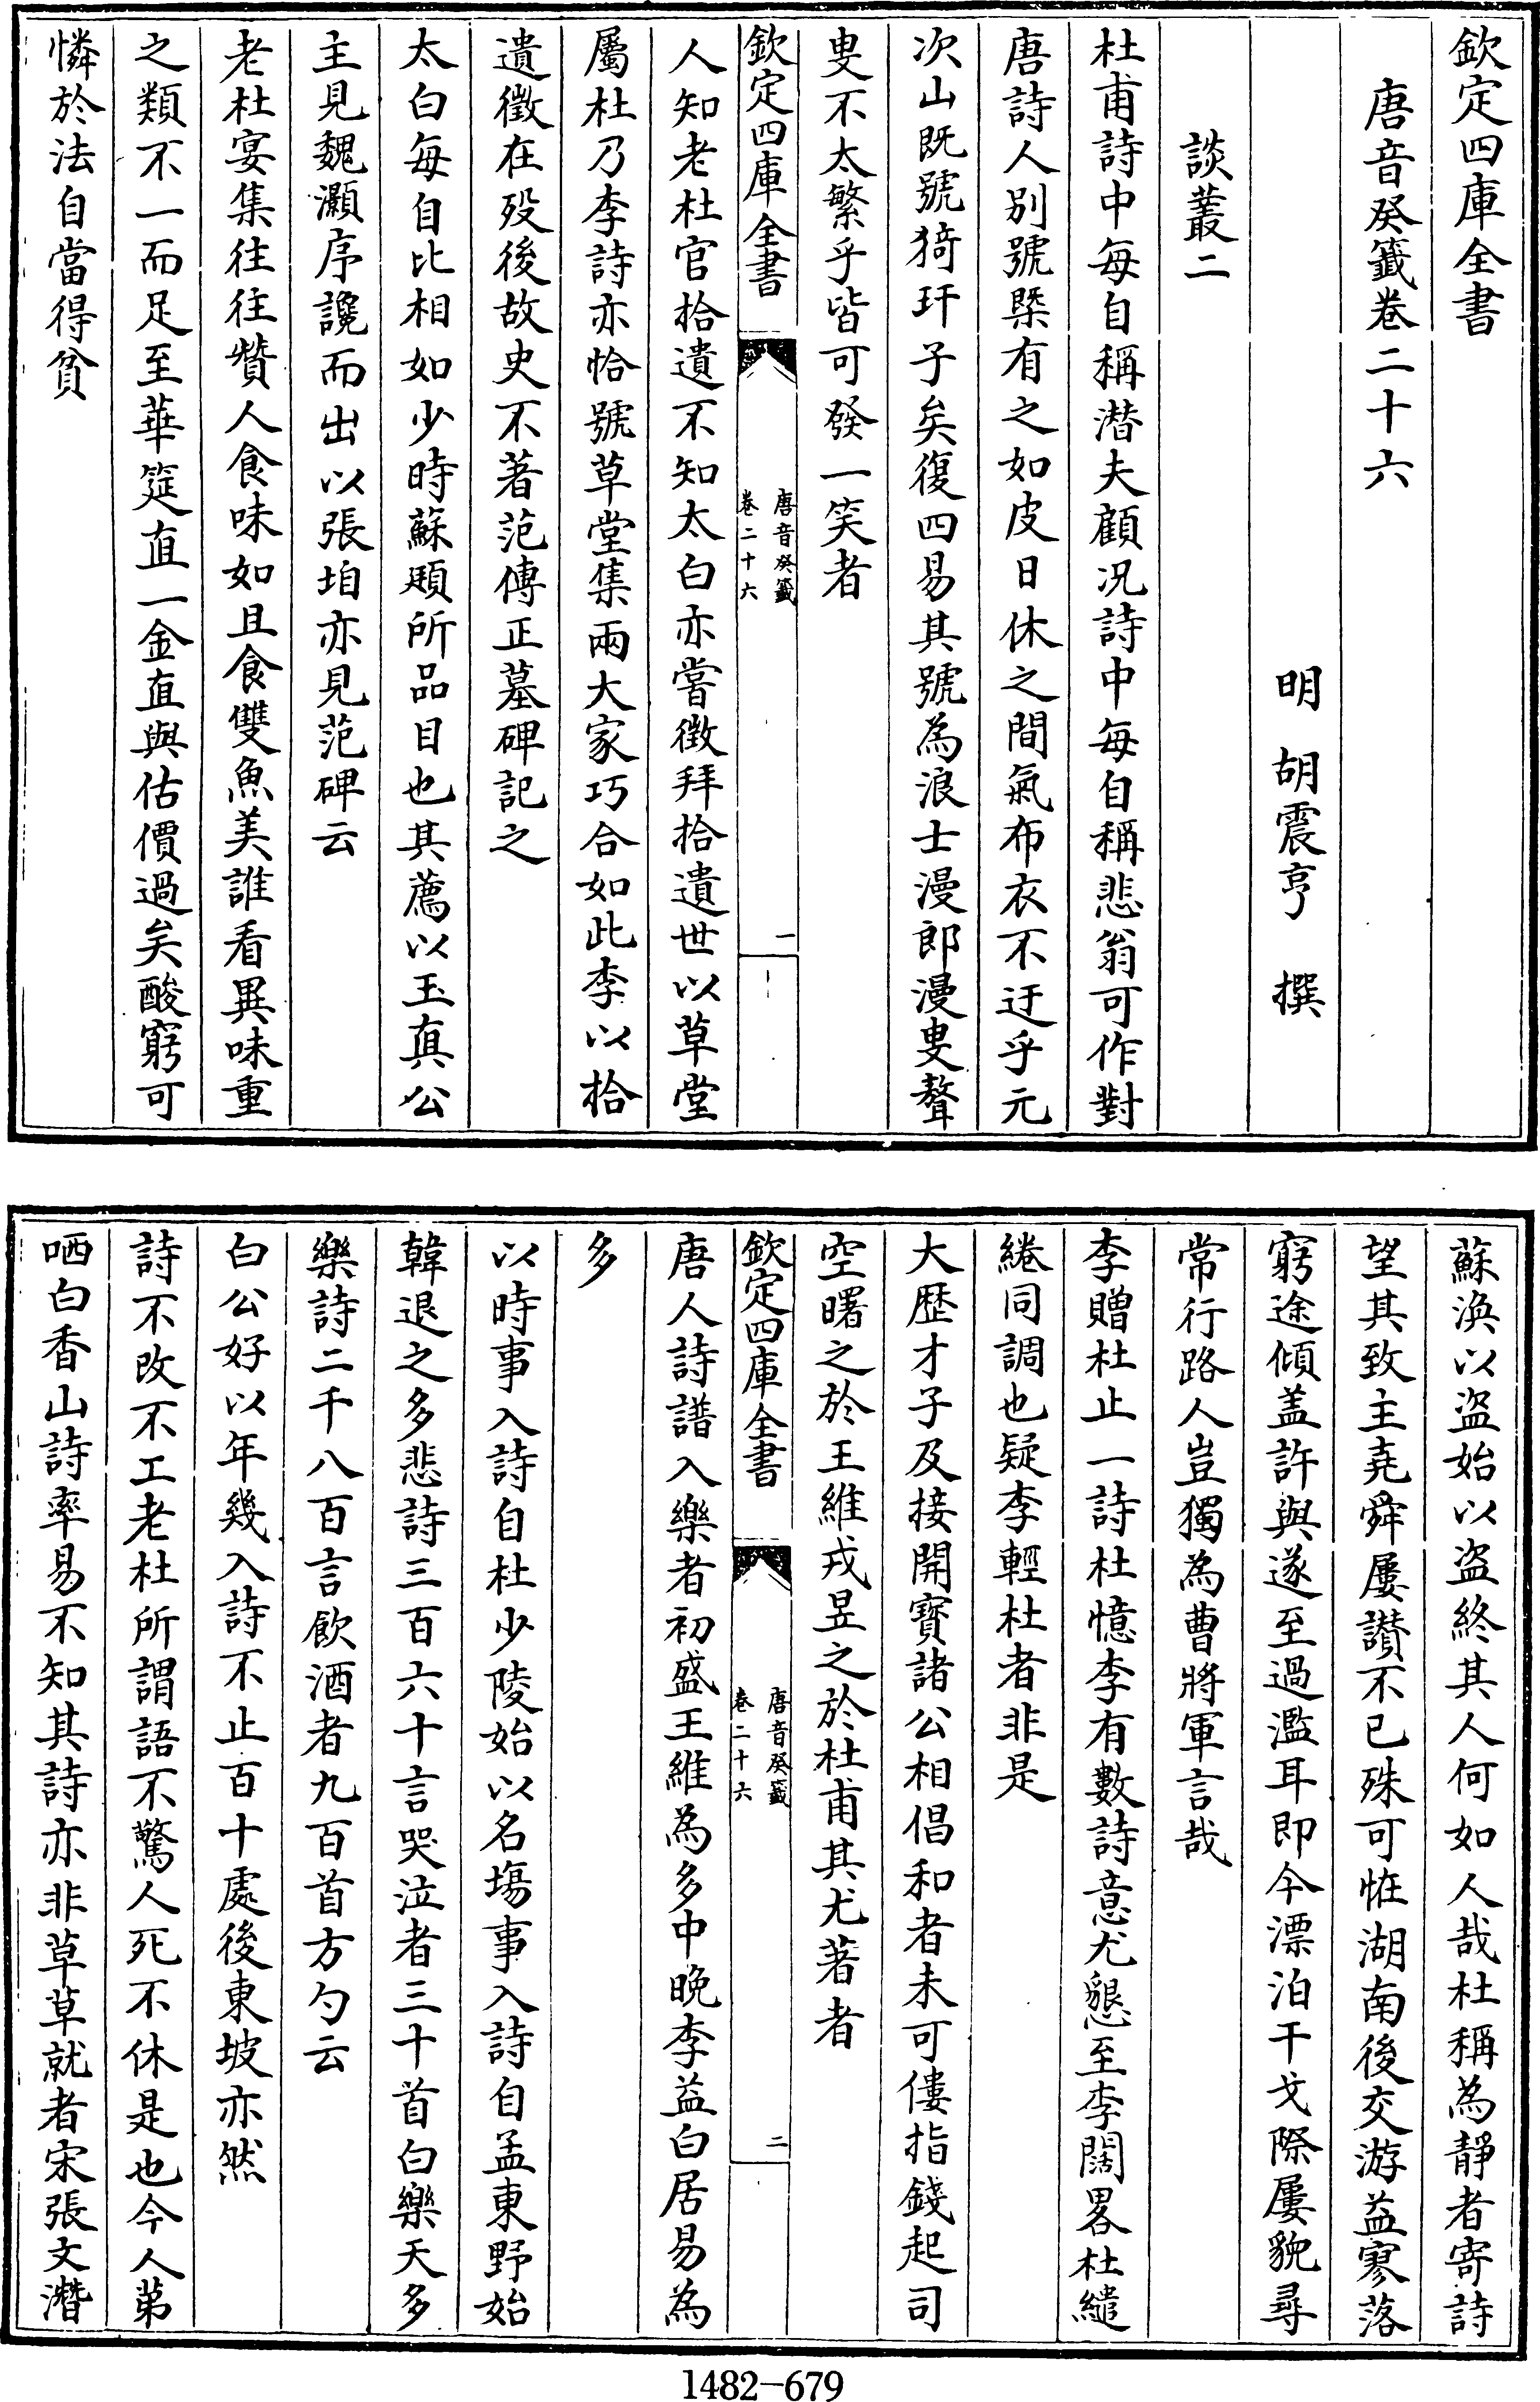 欽定四庫全書
唐音癸籤卷二十六
明　胡震亨　撰
談叢二
杜甫詩中每自稱潛夫顧況詩中每自稱悲翁可作對
唐詩人別號槩有之如皮日休之間氣布衣不迂乎元
次山既號猗玗子矣復四易其號為浪士漫郎漫叟聱
叟不太繁乎皆可發一笑者
欽定四庫全書
唐音癸籤
卷二十六
一
人知老杜官拾遺不知太白亦嘗徴拜拾遺世以草堂
屬杜乃李詩亦恰號草堂集兩大家巧合如此李以拾
遺徵在歿後故史不著范傳正墓碑記之
太白每自比相如少時蘇頲所品目也其薦以玉真公
主見魏灝序讒而出以張垍亦見范碑云
老杜宴集往往贊人食味如且食雙魚美誰看異味重
之類不一而足至華筵直一金直與估價過矣酸窮可
憐於法自當得貧
蘇渙以盜始以盜終其人何如人哉杜稱為靜者寄詩
望其致主堯舜屢讚不已殊可恠湖南後交游益寥落
窮途傾盖許與遂至過濫耳即今漂泊干戈際屢貌尋
常行路人豈獨為曹將軍言哉
李贈杜止一詩杜憶李有數詩意尤懇至李闊畧杜繾
綣同調也疑李輕杜者非是
大歷才子及接開寶諸公相倡和者未可僂指錢起司
空曙之於王維戎昱之於杜甫其尤著者
欽定四庫全書
唐音癸籤
卷二十六
二
唐人詩譜入樂者初盛王維為多中晚李益白居易為
多
以時事入詩自杜少陵始以名塲事入詩自孟東野始
韓退之多悲詩三百六十言哭泣者三十首白樂天多
樂詩二千八百言飲酒者九百首方勺云
白公好以年幾入詩不止百十處後東坡亦然
詩不改不工老杜所謂語不驚人死不休是也今人第
哂白香山詩率易不知其詩亦非草草就者宋張文潛
1482-679